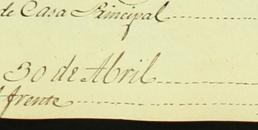 de Casa Principal
30 de Abril
frente